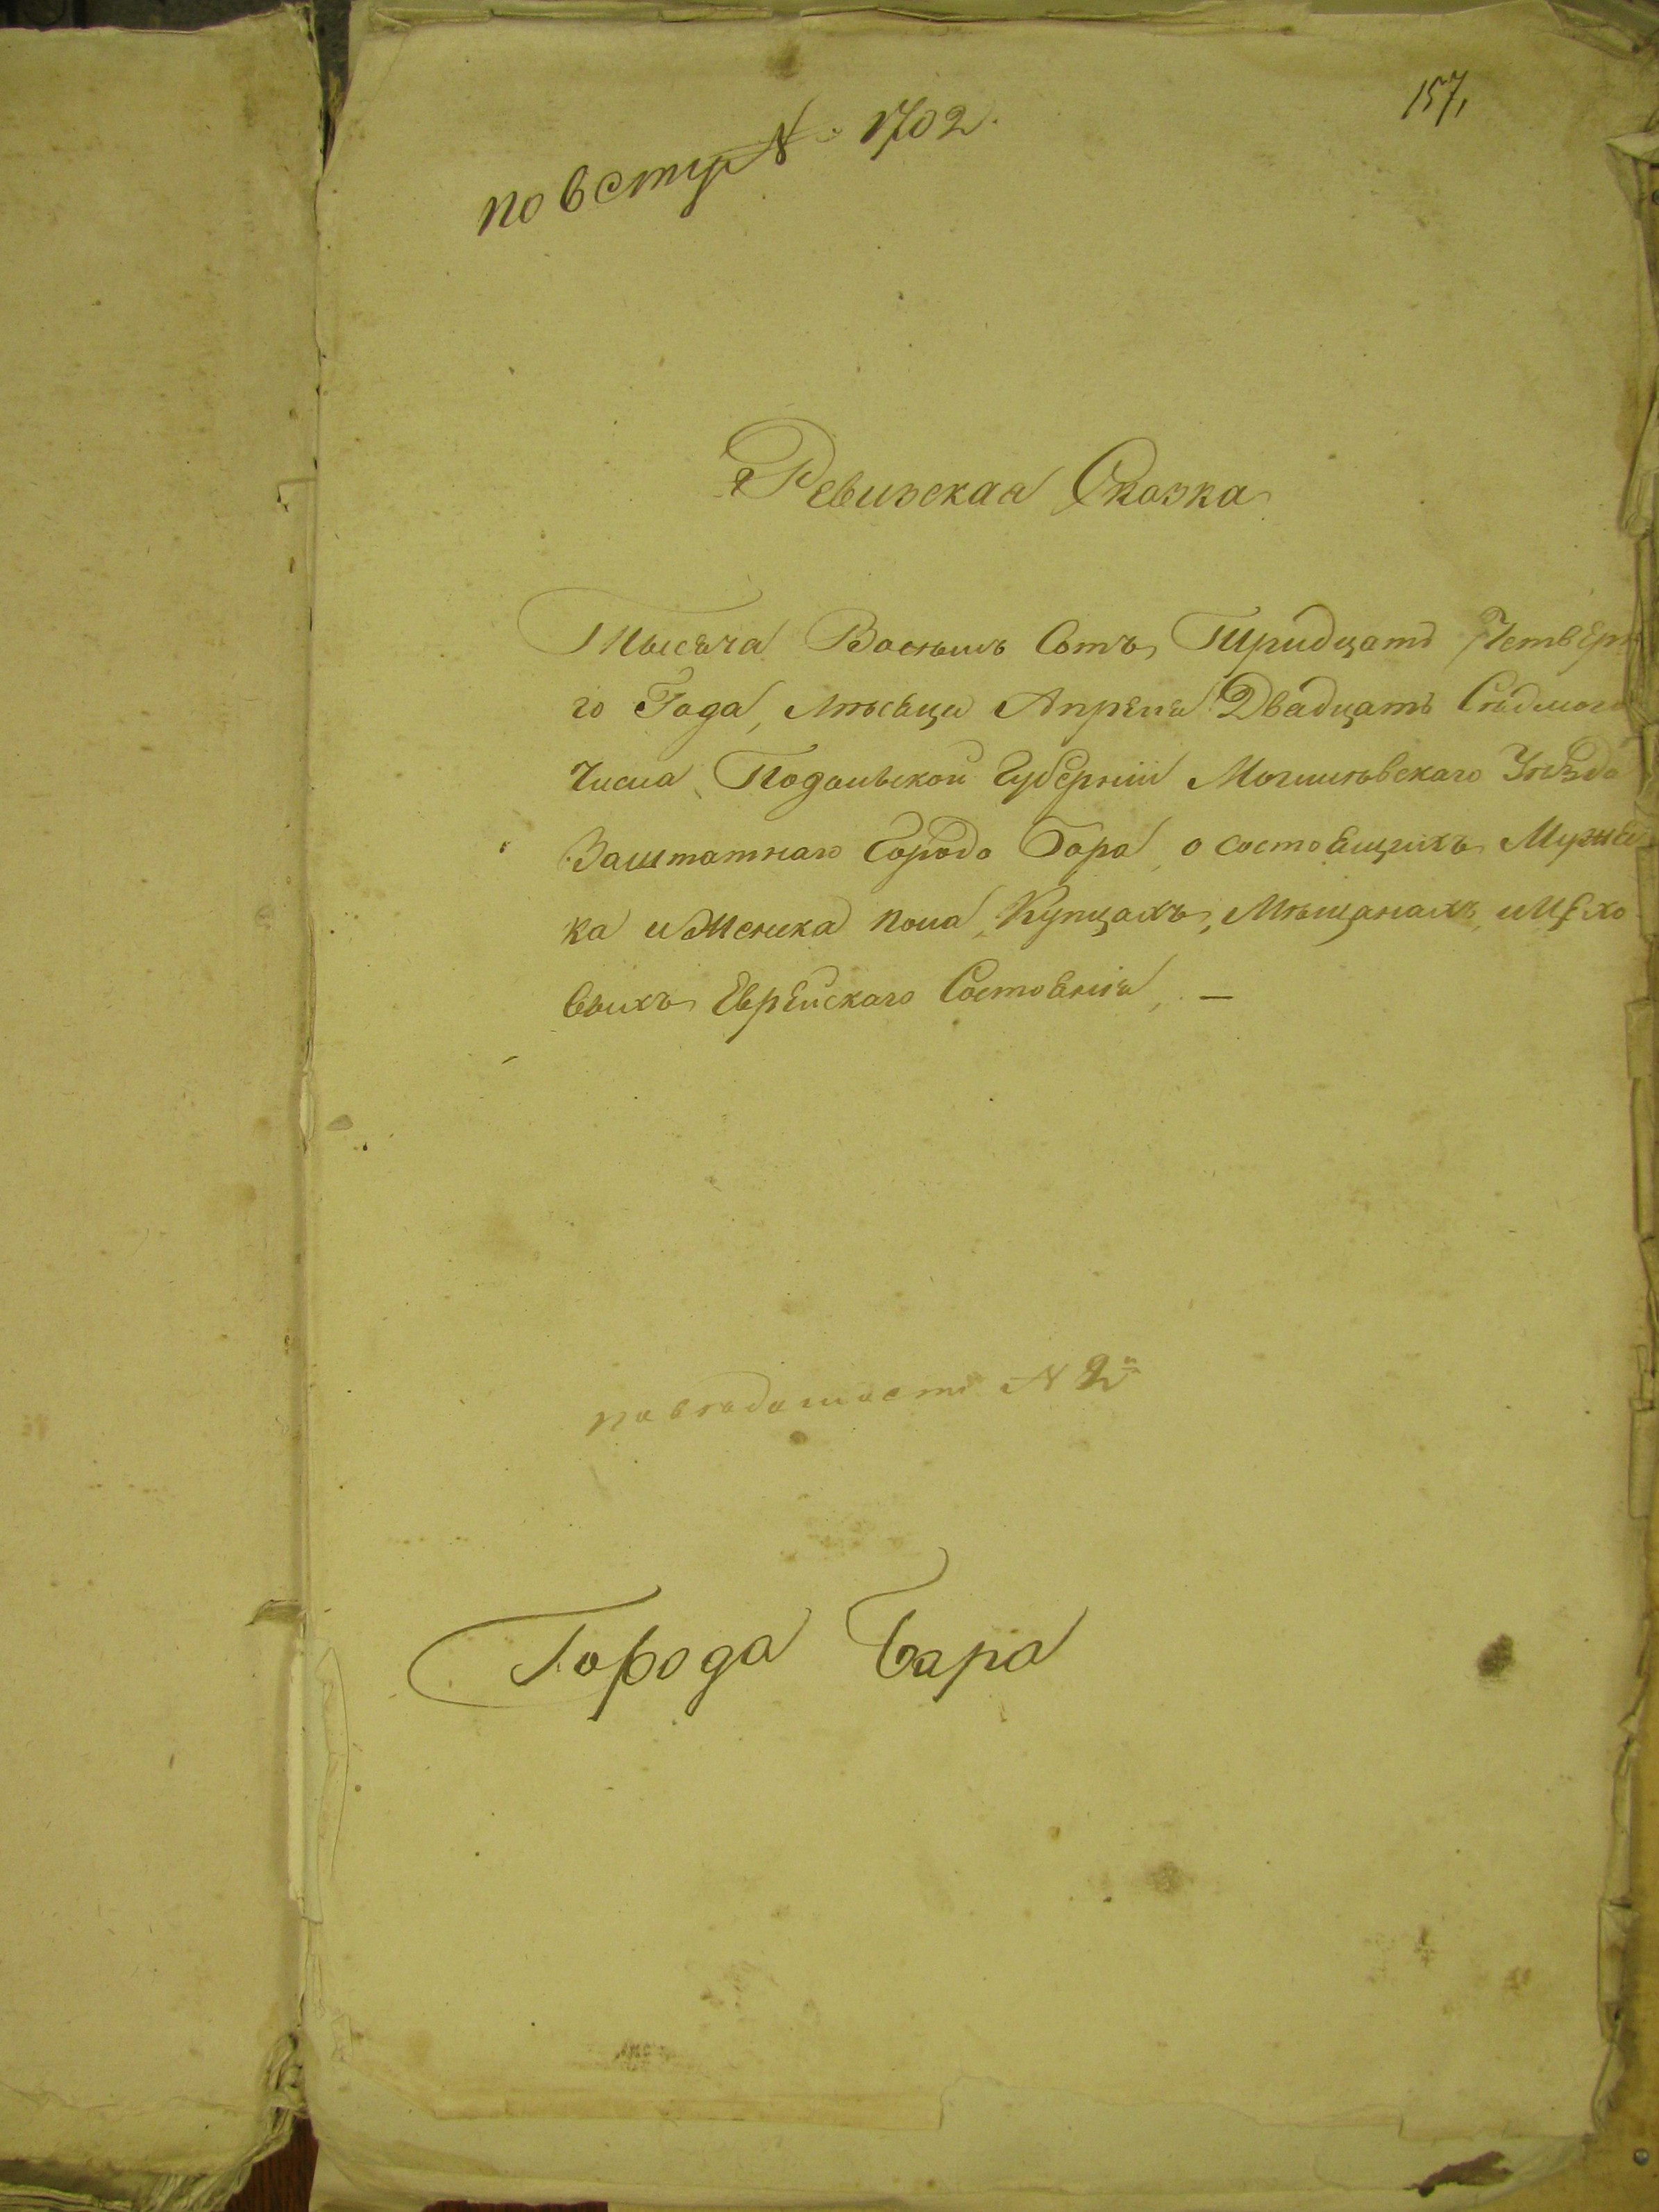 157,
по вступ № 1702.
Ревизская Сказка
Тысяча Восемь Сотъ Тридцать Четверта
го Года, Мѣсяца Апреля Двадцать Седмого
Числа Подольской Губерніи Могилювскаго Уѣзда
Заштатнаго Города Бара, о состоящихъ Мужес
ка и Женска пола, Купцахъ, Мѣщанахъ, и Цехо
выхъ Еврейскаго Состоянія, —
по ведомости № 2й
Города Бара